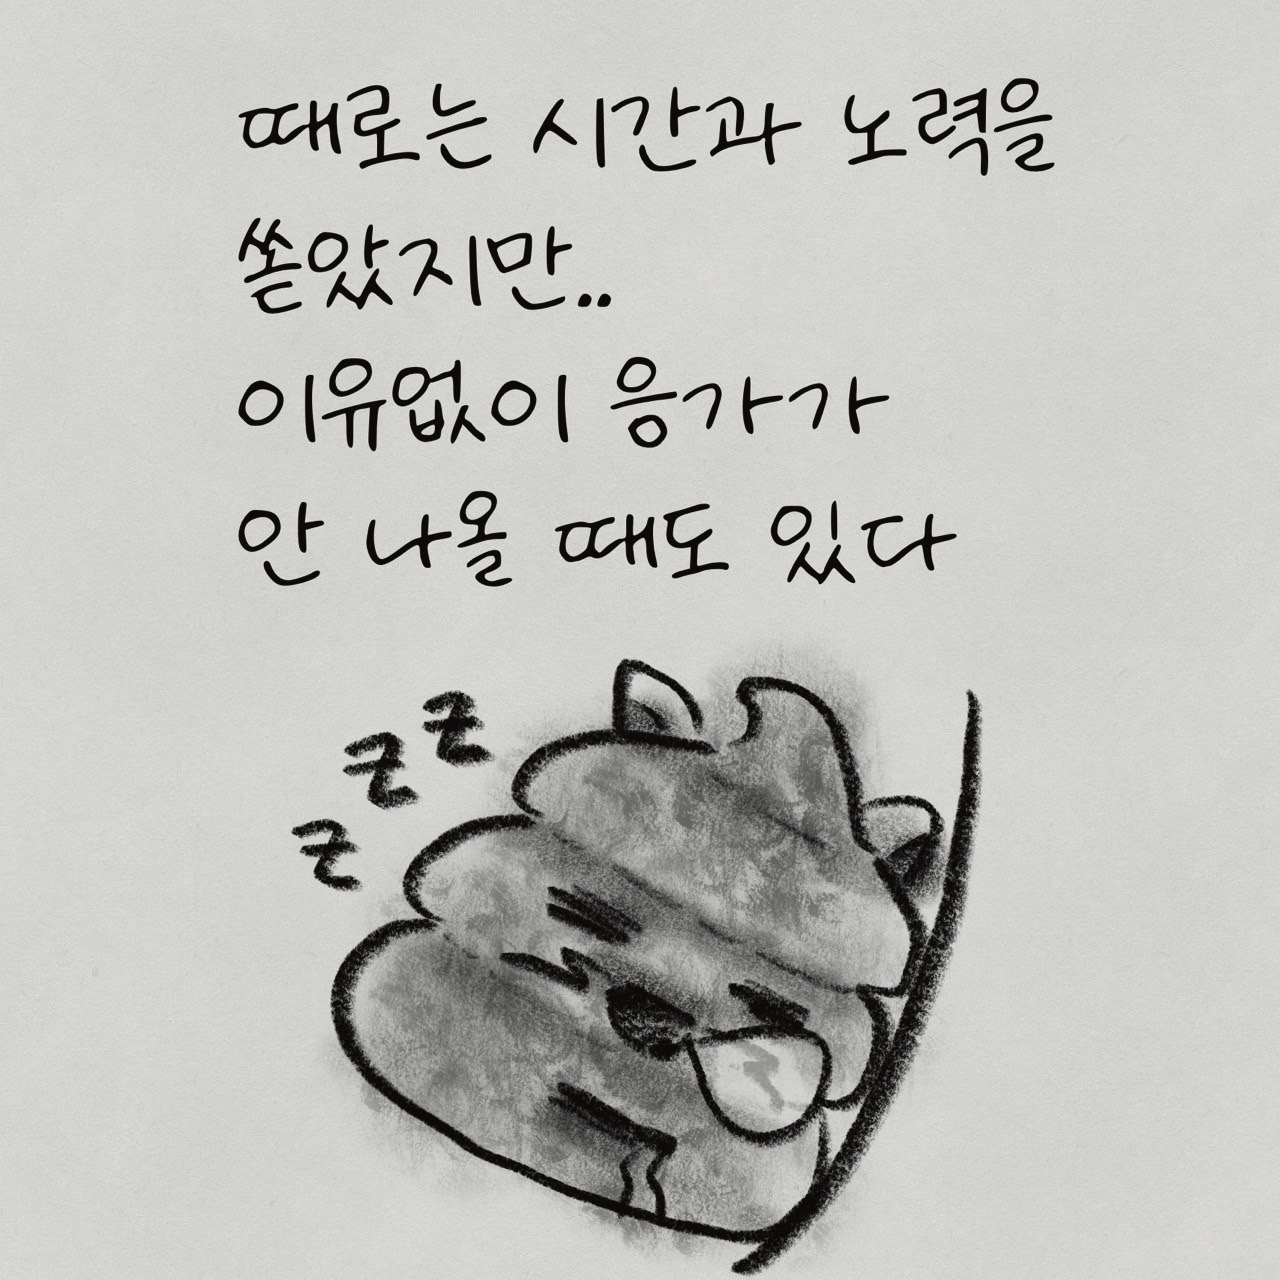 때로는 시간과 노력을
쏟았지만..
이유없이 응가가
안 나올 때도 있다
z z z z